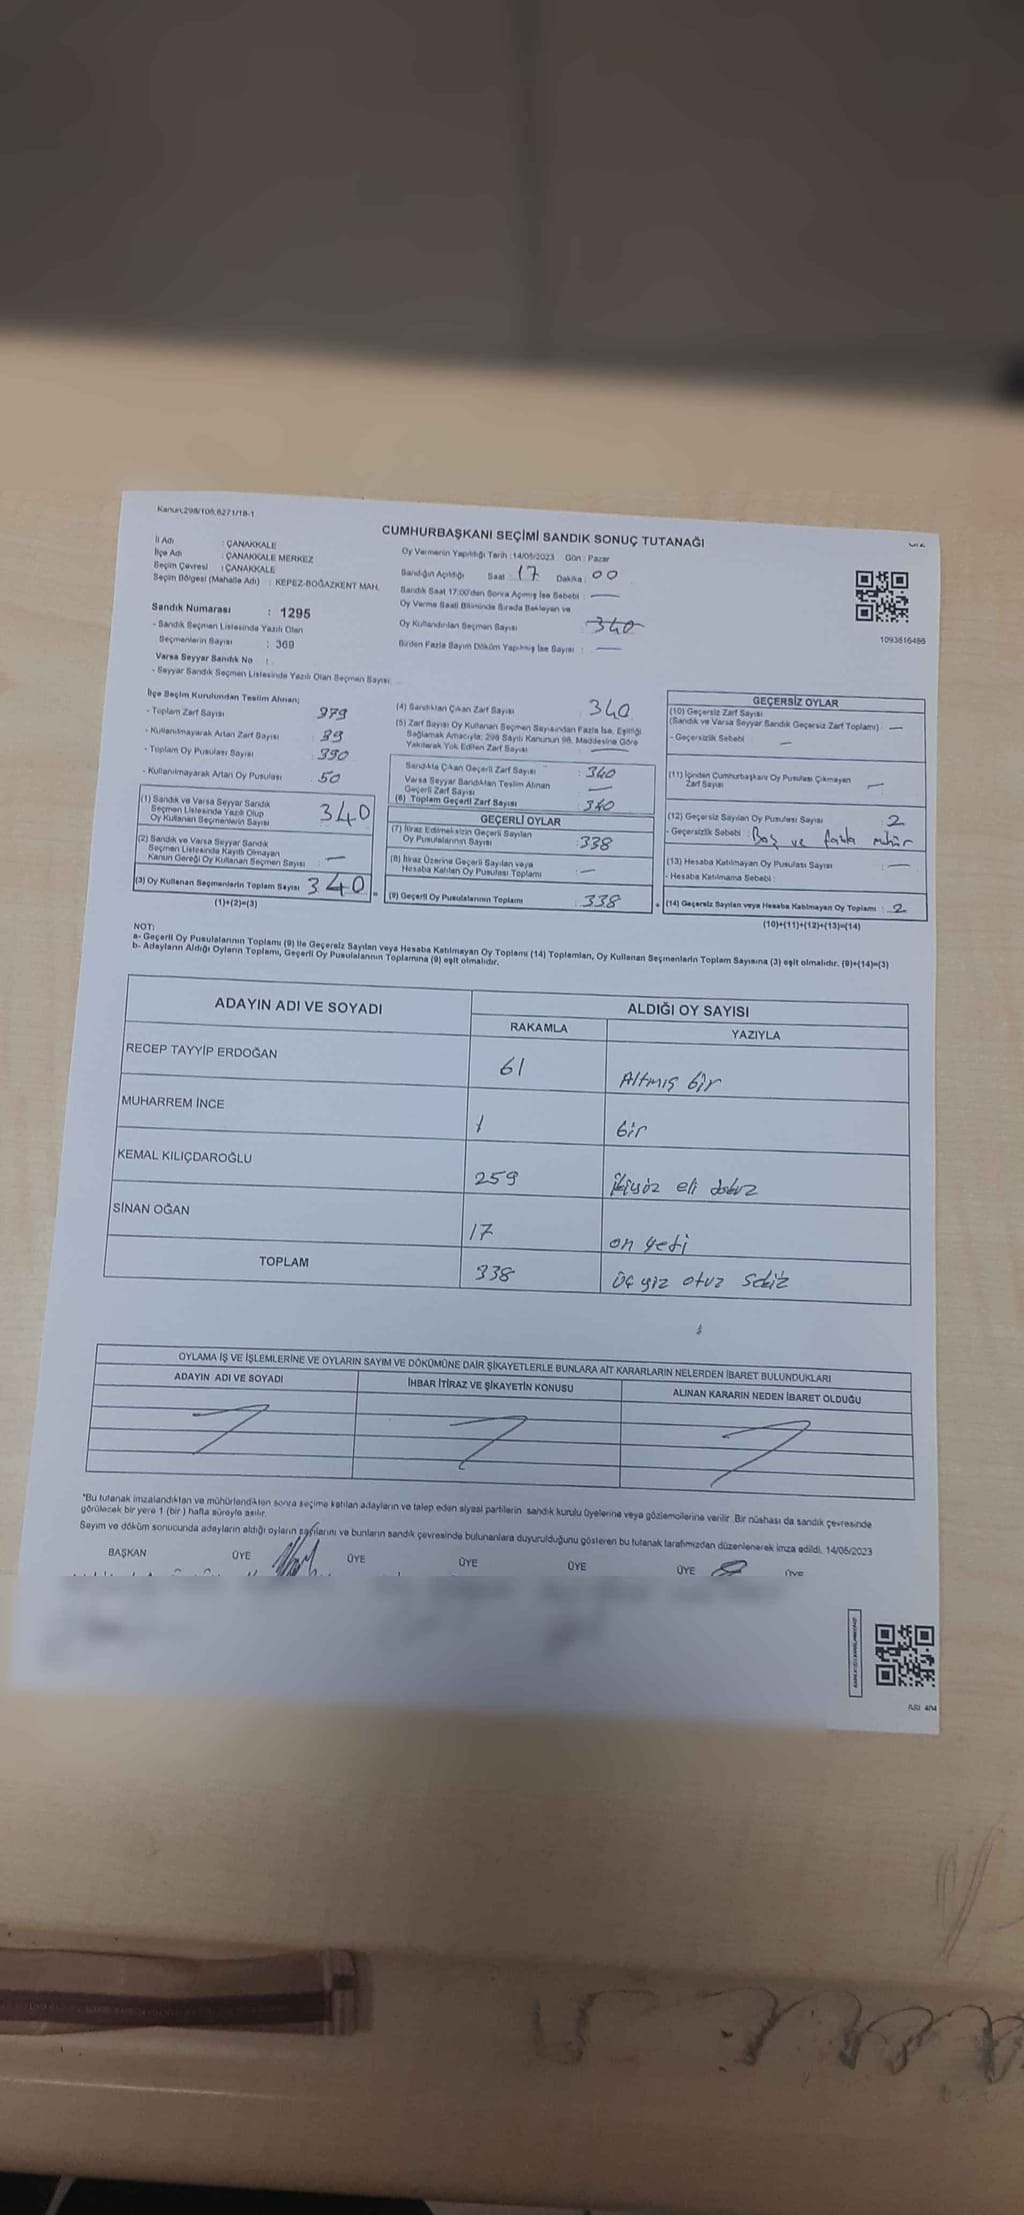 Kanun:298/105,6271/18-1
CUMHURBAŞKANI SEÇİMİ SANDIK SONUÇ TUTANAĞI
İl Adı : ÇANAKKALE
İlçe Adı : ÇANAKKALE MERKEZ
Seçim Çevresi : ÇANAKKALE
Seçim Bölgesi (Mahalle Adı) : KEPEZ-BOĞAZKENT MAH.
Oy Vermenin Yapıldığı Tarih : 14/05/2023 Gün : Pazar
Sandığın Açıldığı Saat : 17 Dakika : 00
Sandık Saat 17:00'den Sonra Açılmış İse Sebebi : —
Oy Verme Saati Bitiminde Sırada Bekleyen ve
Oy Kullandırılan Seçmen Sayısı 340
Birden Fazla Sayım Döküm Yapılmış İse Sayısı : —
1093816486
Sandık Numarası : 1295
- Sandık Seçmen Listesinde Yazılı Olan
Seçmenlerin Sayısı : 369
Varsa Seyyar Sandık No :
- Seyyar Sandık Seçmen Listesinde Yazılı Olan Seçmen Sayısı:
İlçe Seçim Kurulundan Teslim Alınan;
- Toplam Zarf Sayısı 979
- Kullanılmayarak Artan Zarf Sayısı 39
- Toplam Oy Pusulası Sayısı 390
- Kullanılmayarak Artan Oy Pusulası 50
(1) Sandık ve Varsa Seyyar Sandık
Seçmen Listesinde Yazılı Olup
Oy Kullanan Seçmenlerin Sayısı 340
(2) Sandık ve Varsa Seyyar Sandık
Seçmen Listesinde Kayıtlı Olmayan
Kanun Gereği Oy Kullanan Seçmen Sayısı —
(3) Oy Kullanan Seçmenlerin Toplam Sayısı 340 =
(1)+(2)=(3)
(4) Sandıktan Çıkan Zarf Sayısı 340
(5) Zarf Sayısı Oy Kullanan Seçmen Sayısından Fazla İse, Eşitliği
Sağlamak Amacıyla; 298 Sayılı Kanunun 98. Maddesine Göre
Yakılarak Yok Edilen Zarf Sayısı —
Sandıkta Çıkan Geçerli Zarf Sayısı : 340
Varsa Seyyar Sandıktan Teslim Alınan
Geçerli Zarf Sayısı —
(6) Toplam Geçerli Zarf Sayısı : 340
GEÇERLİ OYLAR
(7) İtiraz Edilmeksizin Geçerli Sayılan
Oy Pusulalarının Sayısı : 338
(8) İtiraz Üzerine Geçerli Sayılan veya
Hesaba Katılan Oy Pusulası Toplamı : —
(9) Geçerli Oy Pusulalarının Toplamı : 338 +
GEÇERSİZ OYLAR
(10) Geçersiz Zarf Sayısı
(Sandık ve Varsa Seyyar Sandık Geçersiz Zarf Toplamı) : —
- Geçersizlik Sebebi : —
(11) İçinden Cumhurbaşkanı Oy Pusulası Çıkmayan
Zarf Sayısı —
(12) Geçersiz Sayılan Oy Pusulası Sayısı : 2
- Geçersizlik Sebebi : Boş ve fazla mühür
(13) Hesaba Katılmayan Oy Pusulası Sayısı : —
- Hesaba Katılmama Sebebi :
(14) Geçersiz Sayılan veya Hesaba Katılmayan Oy Toplamı : 2
(10)+(11)+(12)+(13)=(14)
NOT:
a- Geçerli Oy Pusulalarının Toplamı (9) ile Geçersiz Sayılan veya Hesaba Katılmayan Oy Toplamı (14) Toplamları, Oy Kullanan Seçmenlerin Toplam Sayısına (3) eşit olmalıdır. (9)+(14)=(3)
b- Adayların Aldığı Oyların Toplamı, Geçerli Oy Pusulalarının Toplamına (9) eşit olmalıdır.
ADAYIN ADI VE SOYADI ALDIĞI OY SAYISI
RAKAMLA YAZIYLA
RECEP TAYYİP ERDOĞAN 61 Altmış bir
MUHARREM İNCE 1 bir
KEMAL KILIÇDAROĞLU 259 ikiyüz eli dokuz
SİNAN OĞAN 17 on yedi
TOPLAM 338 üç yüz otuz sekiz
OYLAMA İŞ VE İŞLEMLERİNE VE OYLARIN SAYIM VE DÖKÜMÜNE DAİR ŞİKAYETLERLE BUNLARA AİT KARARLARIN NELERDEN İBARET BULUNDUKLARI
ADAYIN ADI VE SOYADI İHBAR İTİRAZ VE ŞİKAYETİN KONUSU ALINAN KARARIN NEDEN İBARET OLDUĞU
*Bu tutanak imzalandıktan ve mühürlendikten sonra seçime katılan adayların ve talep eden siyasi partilerin sandık kurulu üyelerine veya gözlemcilerine verilir. Bir nüshası da sandık çevresinde
görülecek bir yere 1 (bir) hafta süreyle asılır.
Sayım ve döküm sonucunda adayların aldığı oyların sayılarını ve bunların sandık çevresinde bulunanlara duyurulduğunu gösteren bu tutanak tarafımızdan düzenlenerek imza edildi. 14/05/2023
BAŞKAN ÜYE ÜYE ÜYE ÜYE ÜYE ÜYE